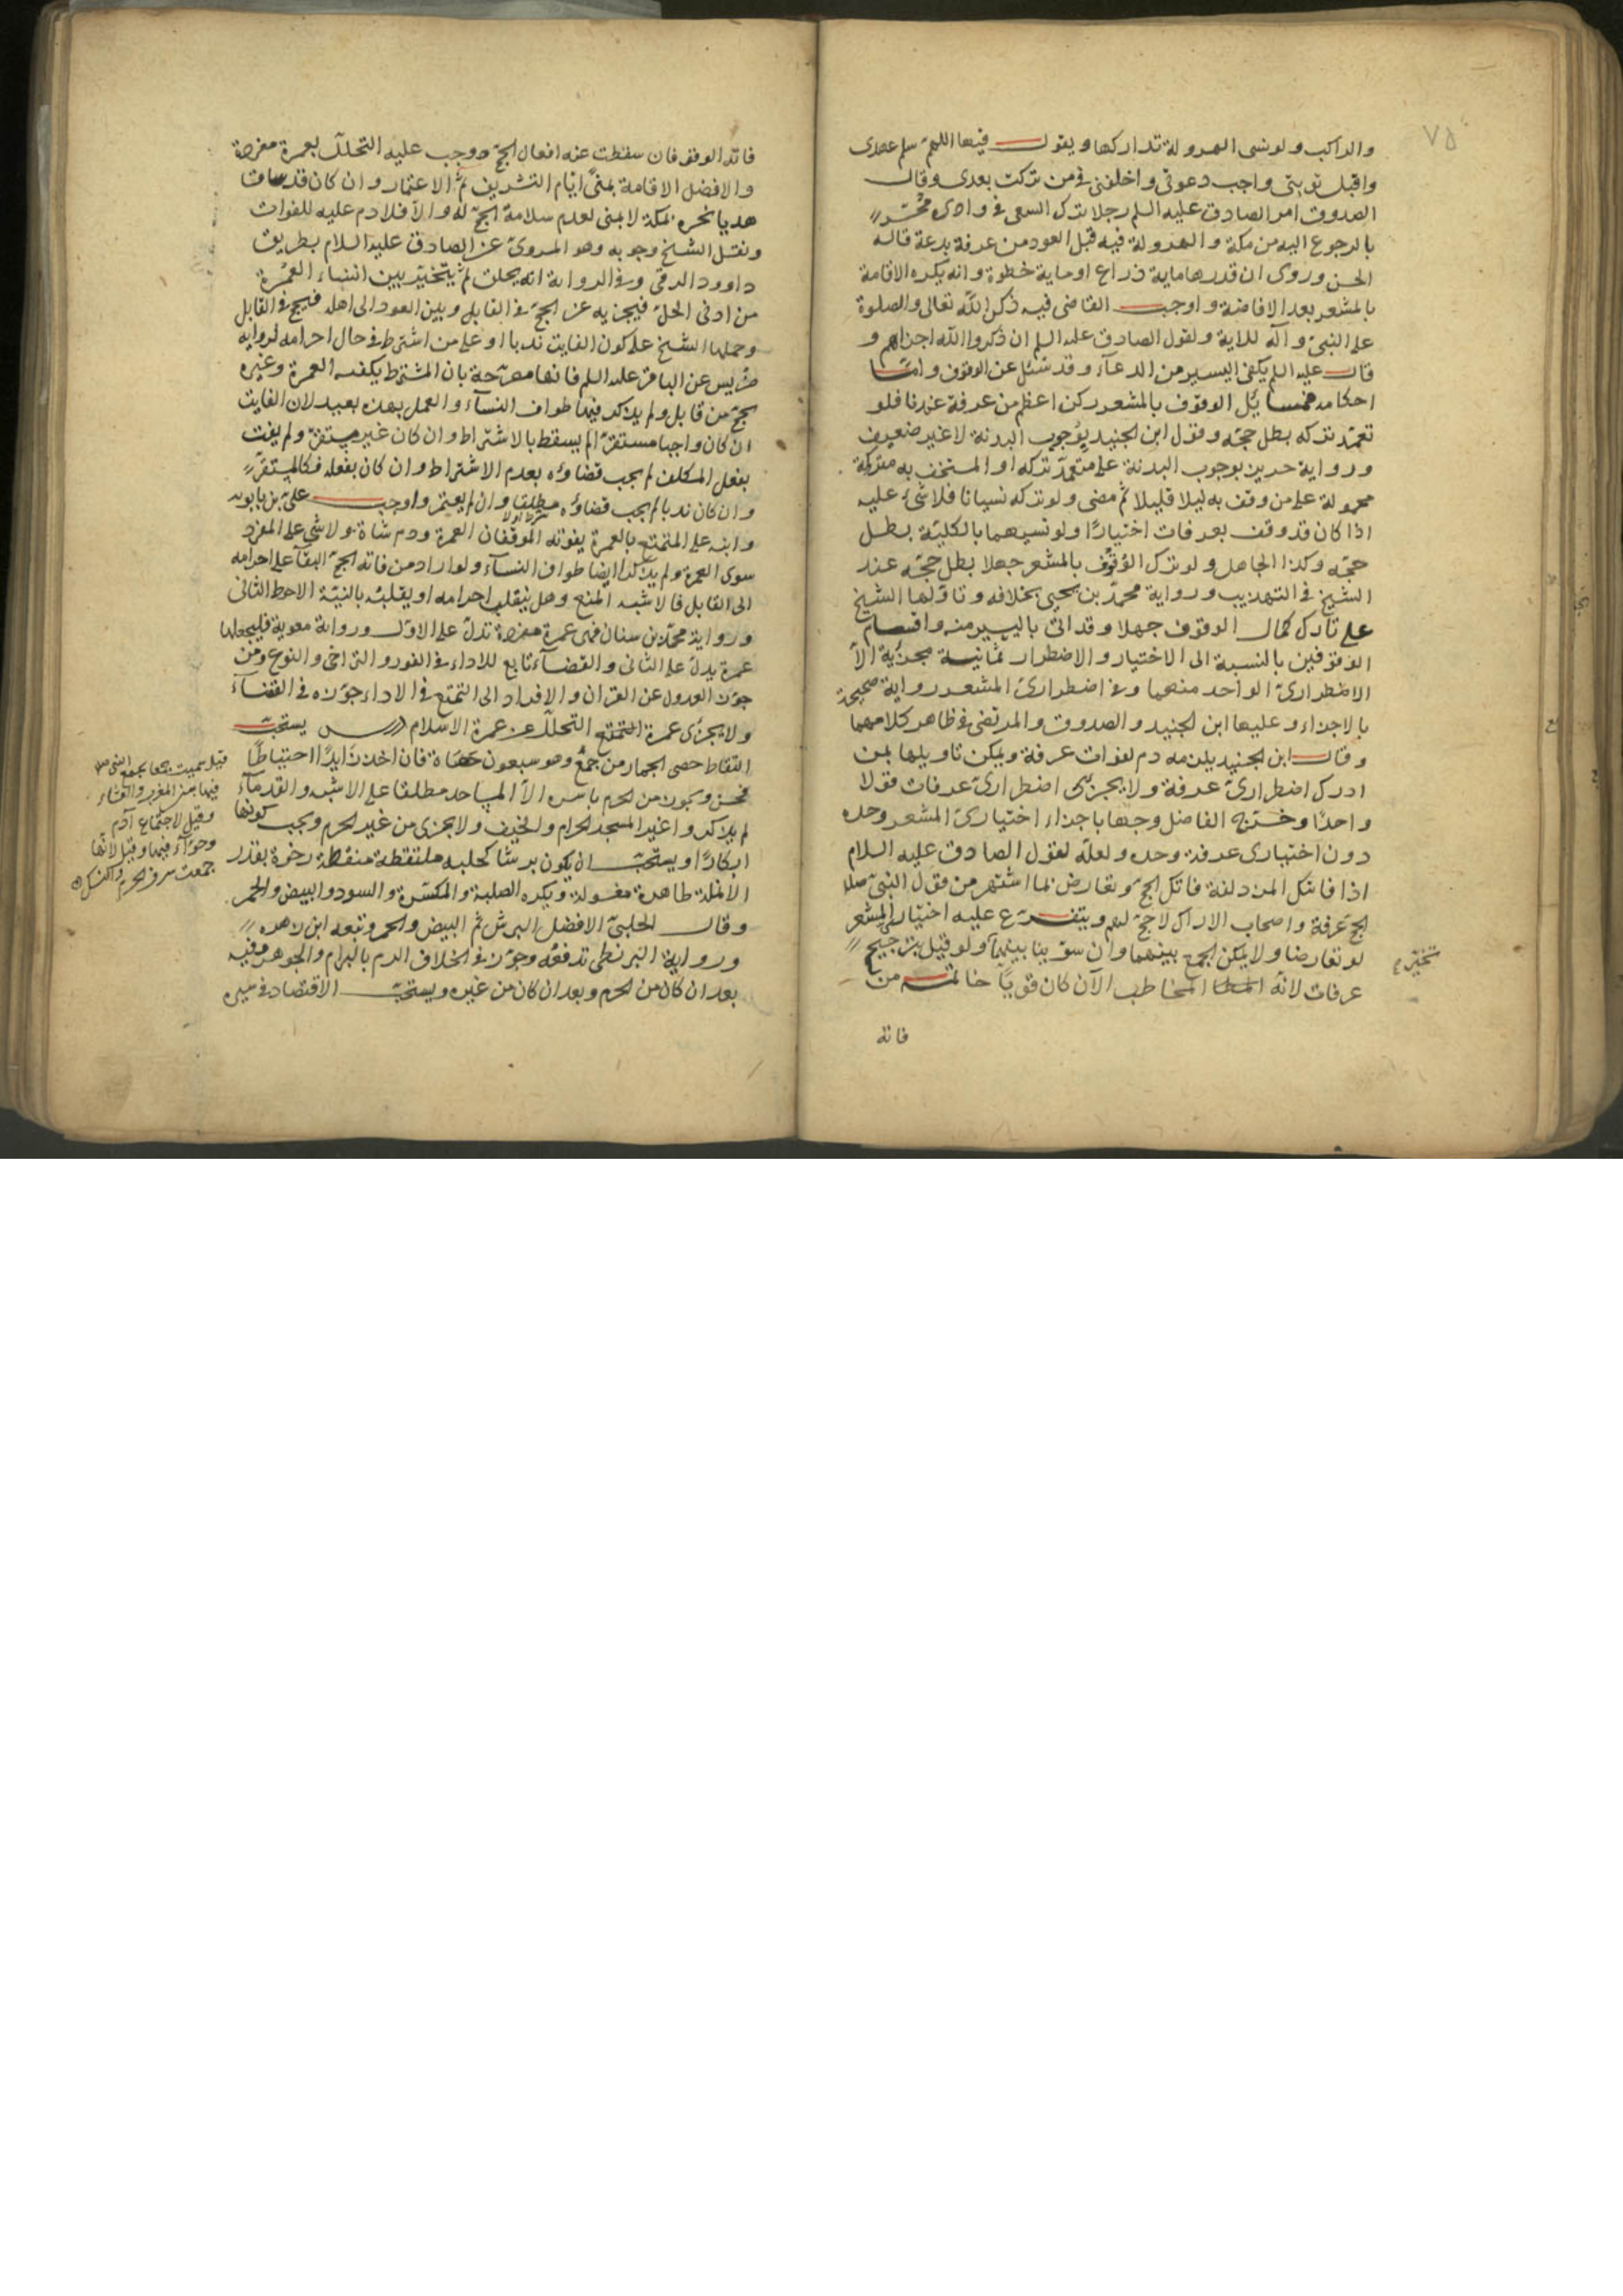 والراكب ولو نسى الهرولة تداركها ويقول فيها اللهم سلم عهدى
واقبل توبتى واجب دعوتى واخلفنى فى من تركت بعدى وقال
الصدوق امر الصادق عليه السلم رجلا ترك السعى فى وادى محسّر
بالرجوع اليه من مكة والهرولة فيه قبل العود من عرفة بدعة قاله
الحسن وروى ان قدرها ماية ذراع او ماية خطوة وانه يكره الاقامة
بالمشعر بعد الافاضة واوجب القاضى فيه ذكر الله تعالى والصلوة
على النبى وآله للاية ولقول الصادق عليه السلم ان ذكروا الله اجزاهم و
قال عليه السلم يكفى اليسير من الدعآء وقد سئل عن الوقوف وامّا
احكامه فمسايل الوقوف بالمشعر ركن اعظم من عرفة عندنا فلو
تعمّد تركه بطل حجّه وقول ابن الجنيد بوجوب البدنة لا غير ضعيف
ورواية حريز بوجوب البدنة على متعمّد تركه او المستخف به متركة
محمولة على من وقف به ليلا قليلا ثم مضى ولو تركه نسيانا فلا شىء عليه
اذا كان قد وقف بعرفات اختيارًا ولو نسيهما بالكليّة بطل
حجّه وكذا الجاهل ولو ترك الوقوف بالمشعر جهلا بطل حجّه عند
الشيخ فى التهذيب ورواية محمّد بن يحيى بخلافه وتاولها الشيخ
على تارك كمال الوقوف جهلا وقد اتى باليسير منه واقسام
الوقوفين بالنسبة الى الاختيار والاضطرار ثمانية مجزية الاّ
الاضطرارىّ الواحد منهما وفى اضطرارىّ المشعر رواية صحيحة
بالاجزاء وعليها ابن الجنيد والصدوق والمرتضى فى ظاهر كلامهما
وقال ابن الجنيد يلزمه دم لفوات عرفة ويمكن تاويلها بمن
ادرك اضطرارىّ عرفة ولا يجزى اضطرارىّ عرفات قولا
واحدًا وخرّج الفاضل وجها باجزاء اختيارىّ المشعر وحده
دون اختيارى عرفة وحده ولعلّه لقول الصادق عليه السلام
اذا فاتتك المزدلفة فاتك الحج ويعارض بما اشتهر من قول النبى صلعم
الحج عرفة واصحاب الاراك لا حج لهم ويتفرّع عليه اختيارى المشعر
لو تعارضا ولا يمكن الجمع بينهما وان سوّينا بينهما ولو قيل بترجيح
تخيّر
عرفات لانّه المخاطب الآن كان قويّا خاتمة من
فاته
فاته الوقوفان سقطت عنه افعال الحجّ ووجب عليه التحلّل بعمرة مفردة
والافضل الاقامة بمنىً ايّام التشريق ثمّ الاعتمار وان كان قد ساق
هديا نحره بمكة لا بمنى لعدم سلامة الحجّ له والاّ فلا دم عليه للفوات
ونقل الشيخ وجوبه وهو المروىّ عن الصادق عليه السلام بطريق
داوود الرقى وفى الرواية انه يحلق ثمّ يتخيّر بين انشاء العمرة
من ادنى الحلّ فيجزيه عن الحجّ فى القابل وبين العود الى اهله فيحج فى القابل
وحملها الشيخ على كون الفايت ندبا او على من اشترط فى حال احرامه لرواية
ضريس عن الباقر عليه السلم فانها مصرّحة بان المشترط يكفيه العمرة وغيره
يحجّ من قابل ولم يذكر فيها طواف النسآء والعمل بهذه بعيد لان الفايت
ان كان واجبا مستقرّا لم يسقط بالاشتراط وان كان غير مستقرّ ولم يفت
بفعل المكلف لم يجب قضاؤه بعدم الاشتراط وان كان بفعله فكالمستقرّ
وان كان ندبا لم يجب قضاؤه مطلقا وان لم يعتمر واوجب علىّ بن بابويه
وابنه على المتمتع بالعمرة يفوته الموقفان العمرة ودم شاة ولا شى على المفرد
سوى العمرة ولم يذكرا ايضا طواف النسآء ولو اراد من فاته الحجّ البقآء على احرامه
الى القابل فالاشبه المنع وهل ينقلب احرامه او يقلبه بالنيّة الاحوط الثانى
ورواية محمّد بن سنان فهى عمرة مفردة تدلّ على الاوّل ورواية معوية فليجعلها
عمرة يدلّ على الثانى والقضآء تابع للاداء فى الفور والتراخى والنوع ومن
جوّز العدول عن القران والافراد الى التمتع فى الاداء جوّزه فى القضآء
ولا يجزى عمرة التحلّل عن عمرة الاسلام درس يستحبّ
التقاط حصى الجمار من جمع وهو سبعون حصاة فان اخذ زايدًا احتياطًا
فحسن ويجوز من الحرم باسره الاّ المساجد مطلقا على الاشبه والقدمآء
لم يذكروا غير المسجد الحرام والخيف ولا يجزى من غير الحرم ويجب كونها
ابكارًا ويستحبّ ان يكون برشا كحلية ملتقطة منقطة رخوة بقدر
الانملة طاهرة مغسولة ويكره الصلبة والمكسّرة والسود والبيض والحمر
وقال الحلبىّ الافضل البرش ثمّ البيض والحمر وتبعه ابن زهره
ورواية البزنطى تدفعه وجوّز فى الخلاف الرمى بالبرام والجوهر وفيه
بعد ان كان من الحرم وبعد ان كان من غيره ويستحبّ الاقتصاد فى سيره
قيل سميت جمعا لجمع النبى صلعم
فيها بين المغرب والعشاء
وقيل لاجتماع آدم
وحوّاء فيها وقيل لانها
جمعت شرف الحرم والنسك